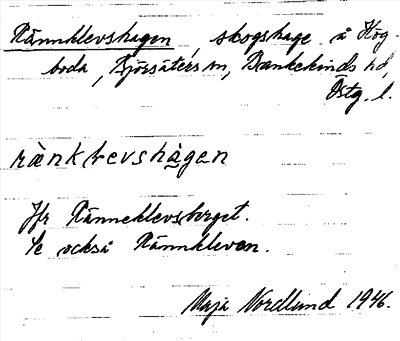 Rännklevshagen, skogshage å Hög-
boda, Björsäters sn, Bankekinds hd,
Östg. l.
ränkḷevshàgen
Jfr Ränneklevsberget.
Se också Rännkleven.
Maja Nordlund 1946.